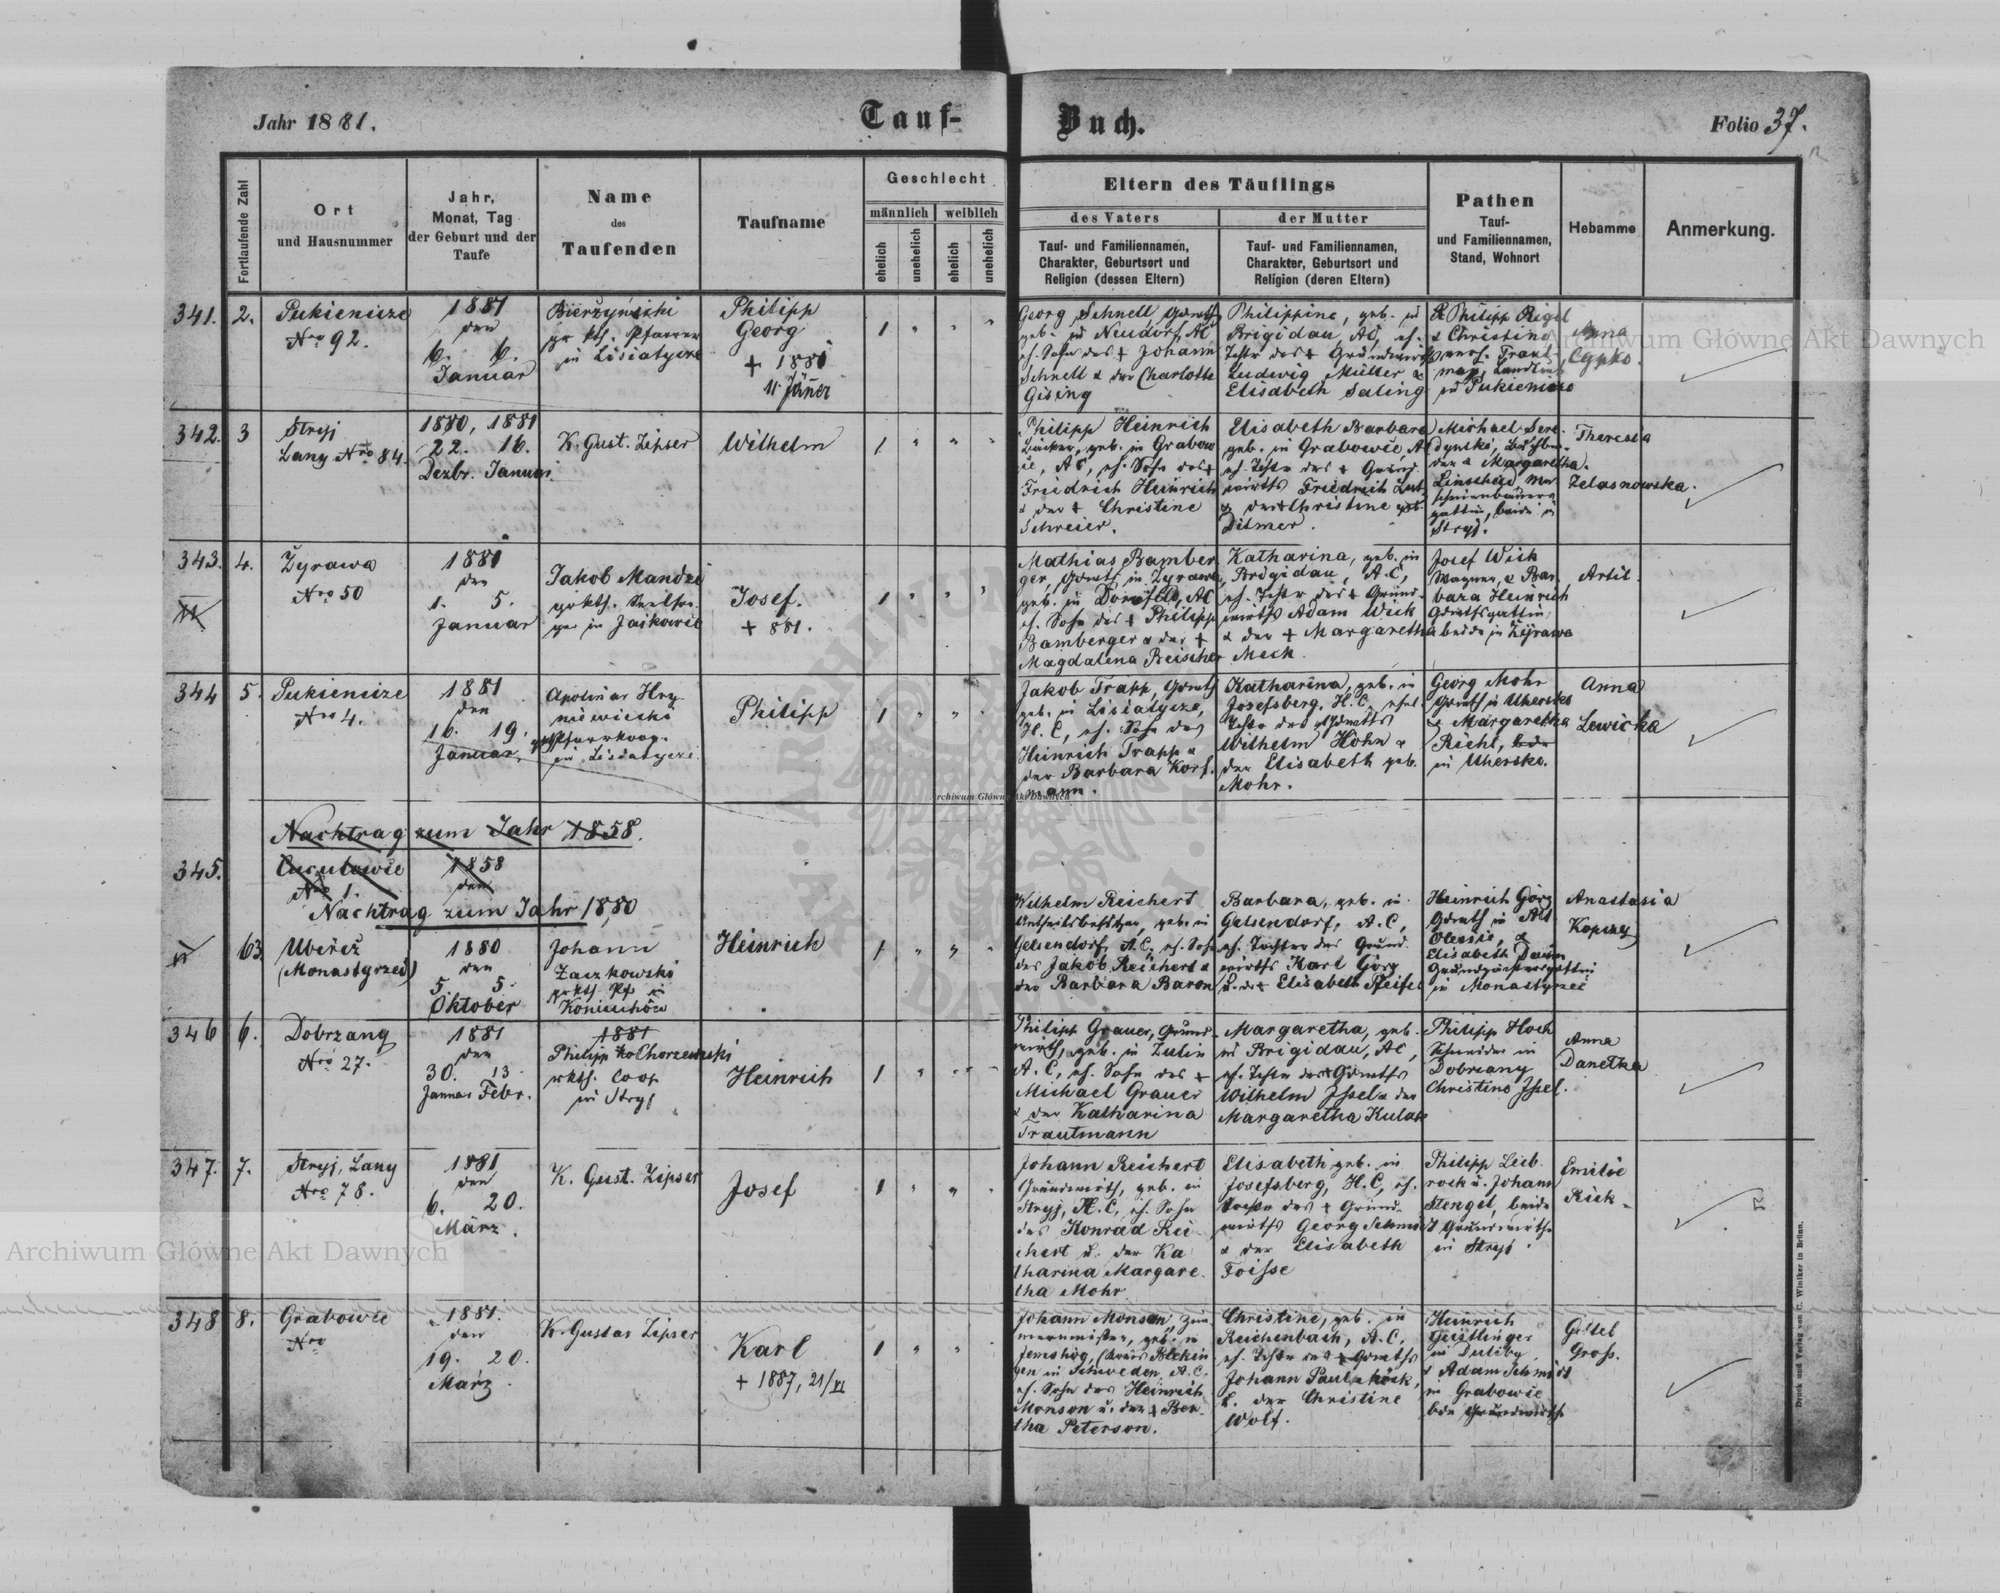 Jahr 1881.
Tauf-
Buch.
Folio 37.
Fortlaufende Zahl
Ort
und Hausnummer
Jahr,
Monat, Tag
der Geburt und der
Taufe
Name
des
Taufenden
Taufname
Geschlecht
männlich
weiblich
ehelich
unehelich
ehelich
unehelich
Eltern des Täuflings
des Vaters
der Mutter
Tauf- und Familiennamen,
Charakter, Geburtsort und
Religion (dessen Eltern)
Tauf- und Familiennamen,
Charakter, Geburtsort und
Religion (deren Eltern)
Pathen
Tauf-
und Familiennamen,
Stand, Wohnort
Hebamme
Anmerkung.
341. 2.
Pukienicze
Nro 92.
1881
den
6. 6.
Januar
gr. kth. Pfarrer
in Lisiatycze
Philipp
Georg
+ 1881
11 Jäner
1
Georg Schnell
geb. zu Neudorf, AC
eh. Sohn des + Johann
Schnell & der Charlotte
Gising
Philippine, geb. zu
Brigidau, AC, eh.
Tchtr des + Grundwirths
Ludwig Müller &
Elisabeth Saling
Philipp Rigel
& Christine
zu Pukienicze
Anna
Cypko.
342. 3
Stryj
Lany Nro 84.
1880, 1881
22. 16.
Dezbr. Januar
K. Gust. Zipser
Wilhelm
1
Philipp Heinrich
Bäcker, geb. in Grabow
ie, AC, eh. Sohn des +
Friedrich Heinrich
& der + Christine
Schreier.
Elisabeth Barbara
geb. in Grabowie AC
eh. Tchtr des + Grund-
wirths Friedrich
& der + Christine geb.
Ditmer.
Michael Sere-
& Margaretha
gattin, beide in
Stryj.
Theresia
Zelasnowska.
343. 4.
Zyrawa
Nro 50
1881
den
1. 5.
Januar
Jakob Mandzi
grkth. Seelsor-
ger in Jajkowce
Josef.
+ 881.
1
Mathias Bamber
ger, Grwth in Zyrawa,
geb. in Dornfeld, AC
eh. Sohn des + Philipp
Bamberger & der +
Magdalena Reischer
Katharina, geb. in
Brigidau, A.C,
eh. Tchtr des + Grund-
wirths Adam Wick
& der + Margaretha
Meck.
Josef Wick
Wagner, & Bar-
bara Heinrich
Grwthsgattin,
beide in Zyrawa
344 5.
Pukienicze
Nro 4.
1881
den
16. 19.
Januar.
Apolinar
Pfarrkoop.
in Lisiatycze
Philipp
1
Jakob Trapp, Grwth
geb. in Lisiatycze,
H.C, eh. Sohn des
Heinrich Trapp &
der Barbara Korf-
mann.
Katharina, geb. in
Josefsberg, H.C, ehel.
Tchtr des Grwths
Wilhelm Höhn &
der Elisabeth geb.
Mohr.
Georg Mohr
Grwth in Uhersko
& Margaretha
Richl,
in Uhersko.
Anna
Lewicka
Nachtrag zum Jahr 1858.
345.
Cuculowie
Nro 1.
1858
den
Nachtrag zum Jahr 1880
63
Uwież
(Monastyrzec)
1880
den
5. 5.
Oktober
Johann
Zaczkowski
grkth. Pf. in
Koniuchów
Heinrich
1
Wilhelm Reichert
geb. in
Gelsendorf, A.C, eh. Sohn
des Jakob Reichert &
der Barbara Baron
Barbara, geb. in
Gelsendorf, A.C,
eh. Tochter des Grund-
wirths Karl Görz
u. der Elisabeth Pfeifer
Heinrich Görz
Grwth in Alt
Olessie, &
Elisabeth Daum
Grundwirthsgattin
in Monastyrzec
Anastasia
Kopczey
346 6.
Dobrzany
Nro 27.
1881
den
30. 13.
Januar Febr.
1881
Philipp
rkth. Coop
in Stryj
Heinrich
1
Philipp Grauer, Grund-
wirth, geb. in Zulin
A.C, eh. Sohn des +
Michael Grauer
& der Katharina
Trautmann
Margaretha, geb.
in Brigidau, AC,
eh. Tchtr des + Grwths
Wilhelm Issel & der
Margaretha Kulas
Philipp Hoch
Schneider in
Dobrzany
Christine Issel.
Anna
Danetka
347. 7.
Stryj, Lany
Nro 78.
1881
den
6. 20.
März.
K. Gust. Zipser
Josef
1
Johann Reichert
Grundwirth, geb. in
Stryj, H.C, eh. Sohn
des Konrad Rei-
chert u. der Ka
tharina Margare-
tha Mohr
Elisabeth geb. in
Josefsberg, H.C, eh.
Tochter des + Grund-
wirths Georg Schmidt
& der Elisabeth
Foisse
Philipp Lieb-
rock u. Johann
Stengel, beide
Grundwirthe
in Stryj.
Emilie
Rick
348 8.
Grabowie
Nro
1881.
den
19. 20.
März.
K. Gustav Zipser
Karl
+ 1887, 21/XI
1
Johann Monson, Zim
mermeister, geb. in
Jemshög,
in Schweden, A.C.
eh. Sohn des Heinrich
Monson u. der + Ber-
tha Peterson.
Christine, geb. in
Reichenbach, A.C,
eh. Tchtr des + Grwths
Johann Paul
u. der Christine
Wolf.
Heinrich
Geistlinger
in Duliby
& Adam Schmidt
in Grabowie
bde Grundwirthe
Gittel
Gross.
Druck und Verlag von C. Winiker in Brünn.
Archiwum Główne Akt Dawnych
Archiwum Główne Akt Dawnych
Archiwum Główne Akt Dawnych